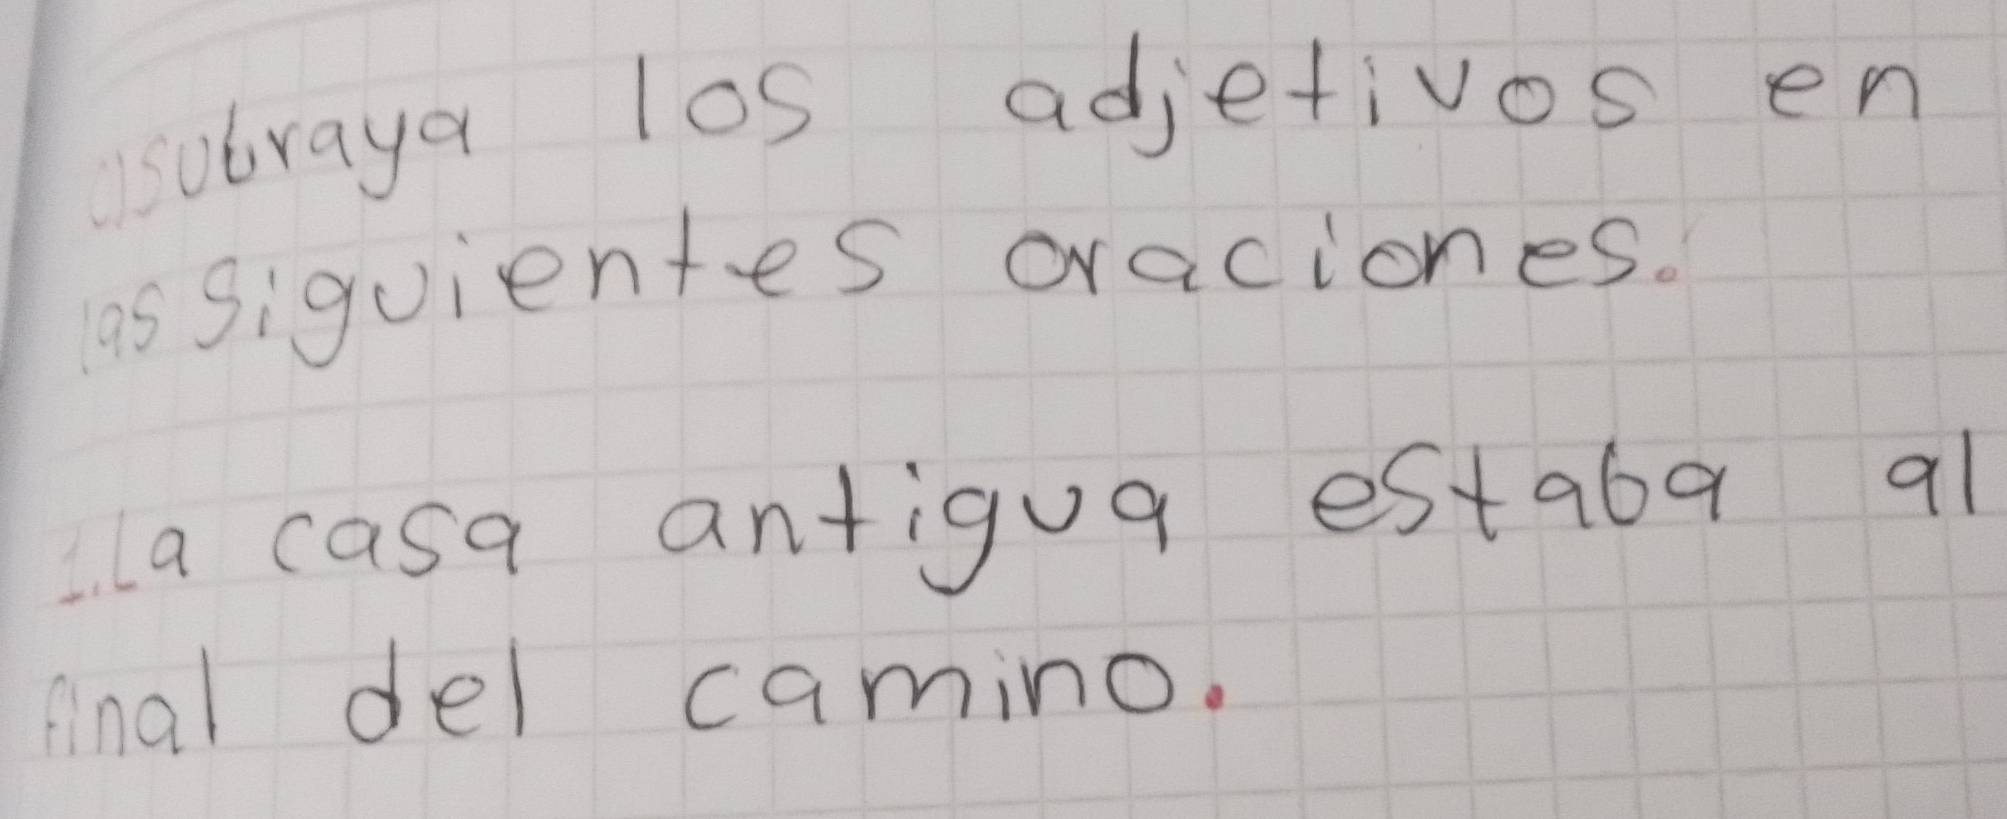 a) subraya los adjetivos en
las siguientes oraciones.
1. La casa antigua estaba al
final del camino.